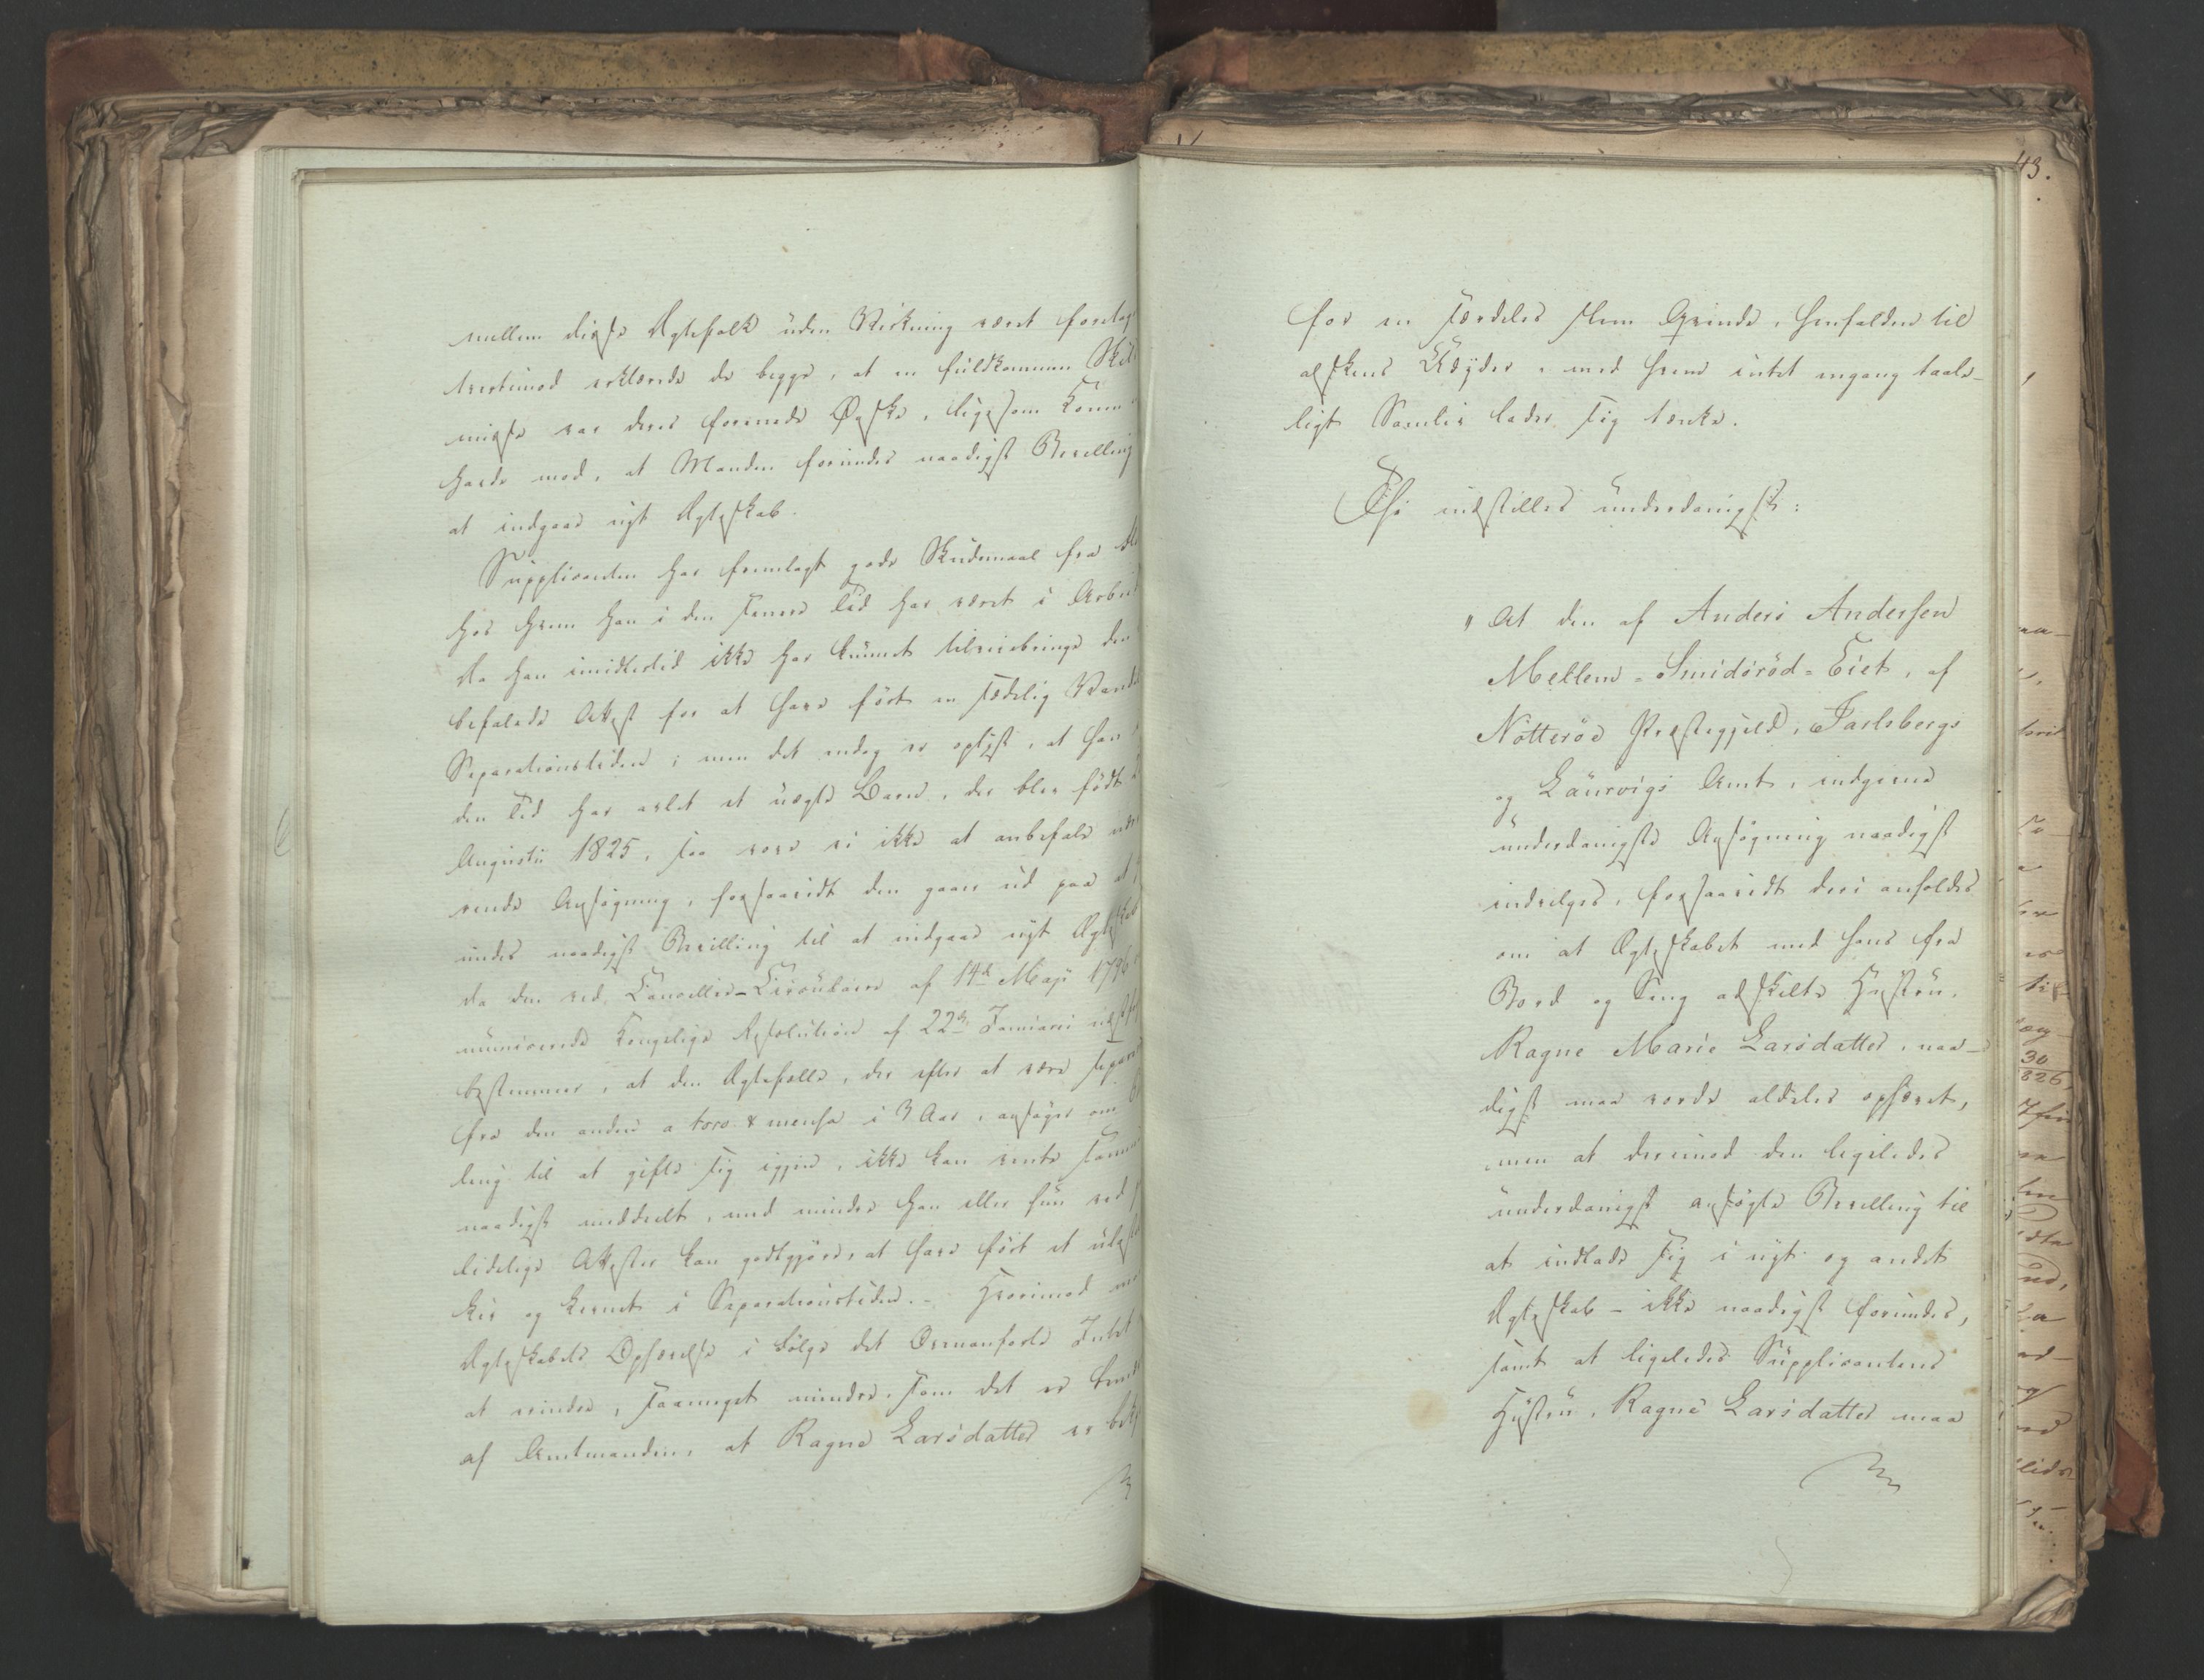 mellem disse Ægtefolk uden Virkning været foretag
tvertimod erklærede de begge, at en fuldkommen Skil
misse var deres forenede Ønske, ligesom Konen
havde mod, at Manden forundes naadigst Bevilling
at indgaae nyt Ægteskab.
Supplicanten har fremlagt gode Skudsmaal fra de
hos hvem han i den senere Tid har været i Arbeid
Da han imidlertid ikke har kunnet tilveiebringe den
befalede Attest for at have ført en sædelig Vandel
Separationstiden; men det endog er oplyst, at han
den Tid har avlet et uægte Barn, der blev født
Augusti 1825, saa vove vi ikke at anbefale
rende Ansøgning, forsaavidt den gaaer ud paa at
undes naadigst Bevilling til at indgaae nyt Ægteskab
da den ved Cancellie-Circulaire af 14de Maji 1796
municerede Kongelige Resolution af 22de Januarii
bestemmer, at den Ægtefælle, der efter at være separ
fra den anden a toro & mensa i 3 Aar, ansøger om
ling til at gifte sig igjen, ikke kan vente samme
naadigst meddeelt, med mindre han eller hun ved
lidelige Attester kan godtgjøre, at have ført et
kys og kernet i Separationstiden. - Hvorimod
Ægteskabets Ophævelse i Følge det Ovenanførte Intet
at erindre, saameget mindre, som det er
af Amtmanden, at Ragne Larsdatter er
43.
for en særdeles slem Qvinde, henfalden til
alskens Udyder, med hvem intet engang taale-
ligt Samliv lader sig tænke.
Thi indstilles underdanigst:
"At den af Anders Andersen
Mellem-Smidsröd-Eiet, af
Nötteröe Præstegjeld, Jarlsbergs
og Laurvigs Amt, indgivne
underdanigste Ansøgning naadigst
indvilges, forsaavidt deri anholdes
om at Ægteskabet med hans fra
Bord og Seng adskilte Hustru,
Ragne Marie Larsdatter, naa-
digst maa vorde aldeles ophævet,
men at derimod den ligeledes
underdanigst ansøgte Bevilling til
at indlade sig i nyt og andet
Ægteskab - ikke naadigst forundes,
samt at ligeledes Supplicantens
Hustru, Ragne Larsdatter maa